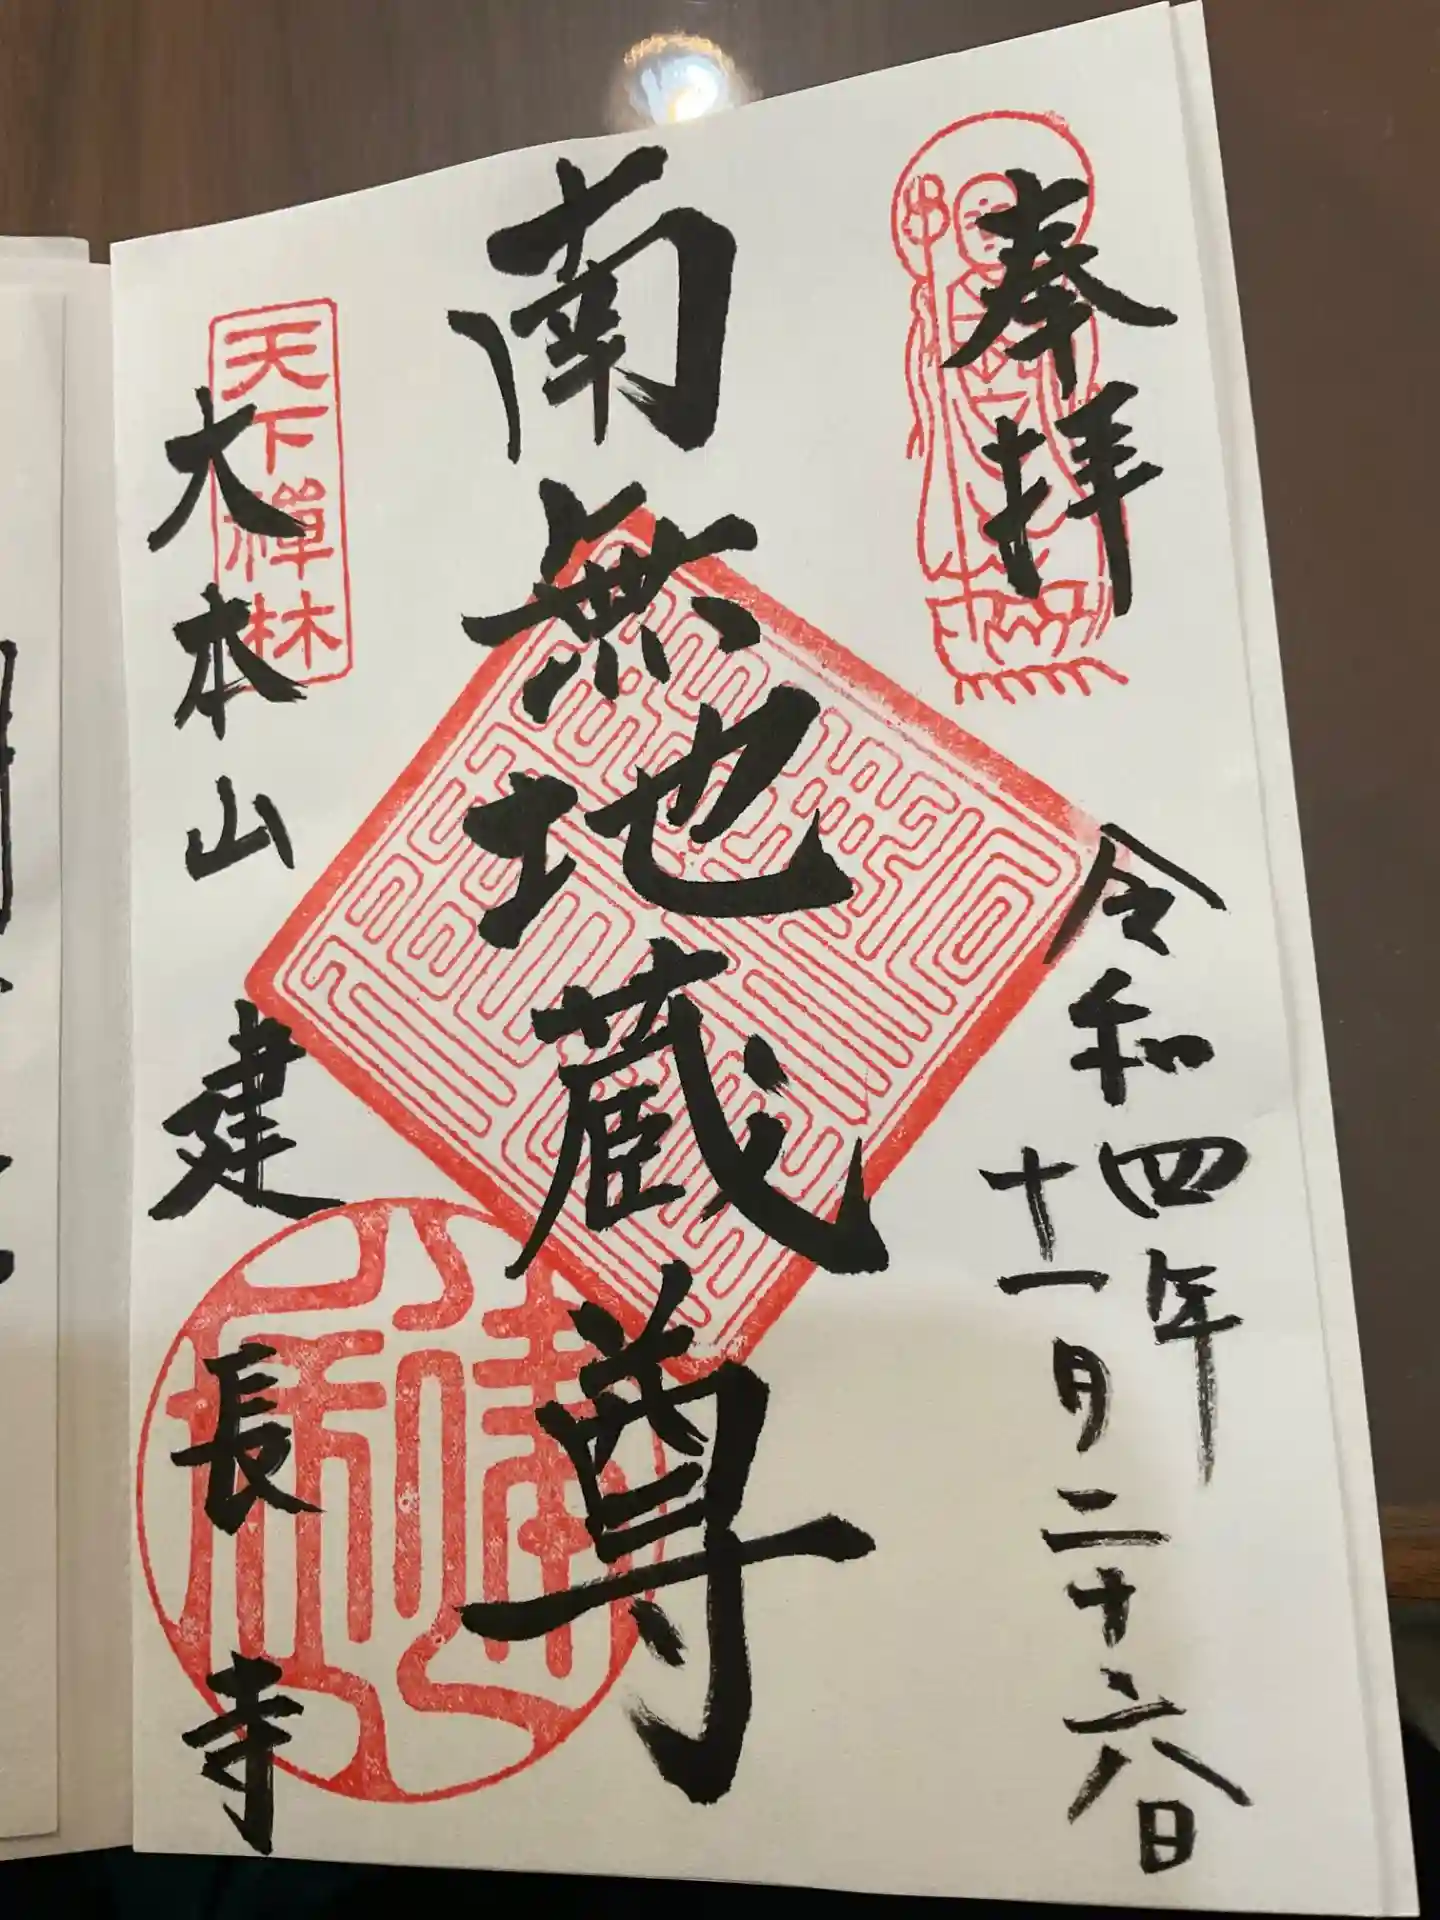 奉拝
令和四年
十一月二十六日
南無地蔵尊
天下禅林
大本山建長寺